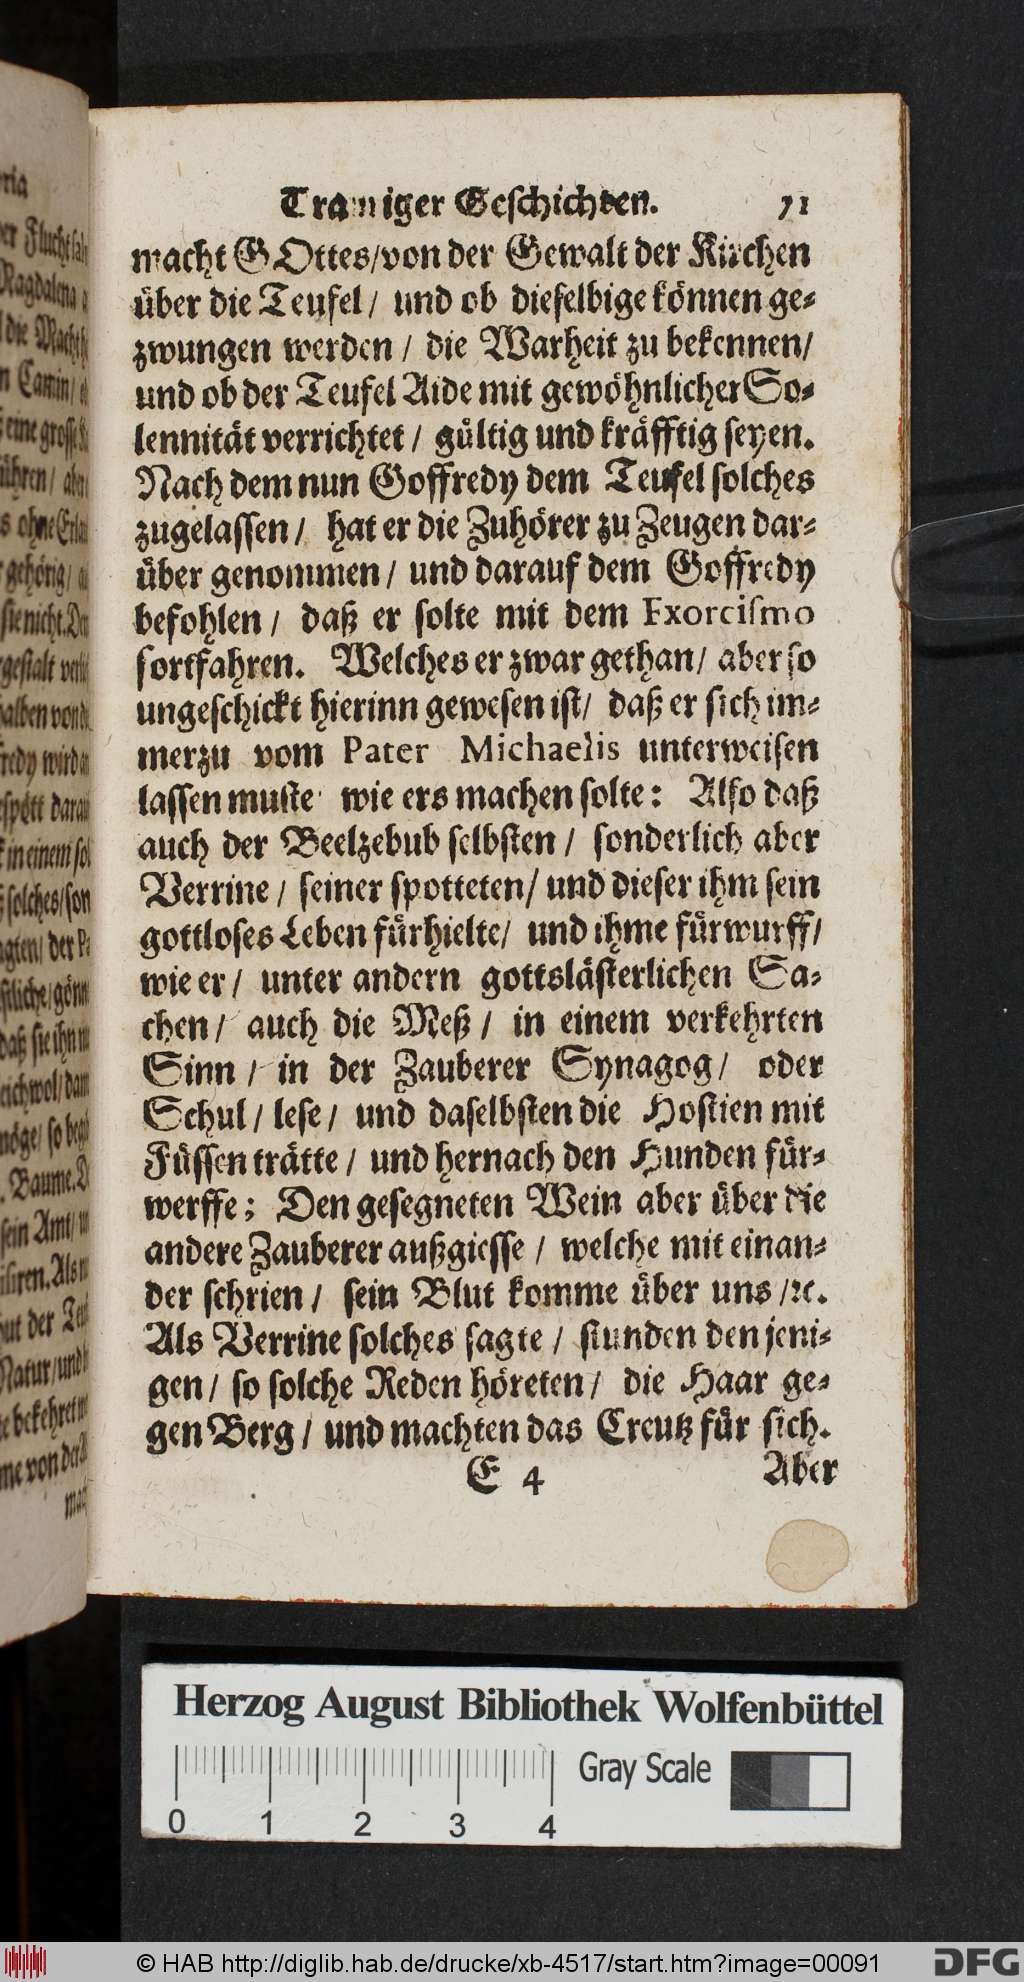 Trauriger Geschichten. 71
macht GOttes/von der Gewalt der Kirchen
über die Teufel/ und ob dieselbige können ge-
zwungen werden / die Warheit zu bekennen/
und ob der Teufel Aide mit gewöhnlicher So-
lennität verrichtet / gültig und kräfftig seyen.
Nach dem nun Goffredy dem Teufel solches
zugelassen / hat er die Zuhörer zu Zeugen dar-
über genommen / und darauf dem Goffredy
befohlen / daß er solte mit dem Exorcismo
fortfahren. Welches er zwar gethan/ aber so
ungeschickt hierinn gewesen ist/ daß er sich im-
merzu vom Pater Michaelis unterweisen
lassen muste wie ers machen solte: Also daß
auch der Beelzebub selbsten / sonderlich aber
Verrine / seiner spotteten/ und dieser ihm sein
gottloses Leben fürhielte/ und ihme fürwurff/
wie er / unter andern gottslästerlichen Sa-
chen / auch die Meß / in einem verkehrten
Sinn / in der Zauberer Synagog / oder
Schul / lese / und daselbsten die Hostien mit
Füssen trätte / und hernach den Hunden für-
werffe; Den gesegneten Wein aber über die
andere Zauberer außgiesse / welche mit einan-
der schrien / sein Blut komme über uns /ꝛc.
Als Verrine solches sagte / stunden den jeni-
gen / so solche Reden höreten / die Haar ge-
gen Berg / und machten das Creutz für sich.
E 4 Aber
Herzog August Bibliothek Wolfenbüttel
Gray Scale
0 1 2 3 4
© HAB http://diglib.hab.de/drucke/xb-4517/start.htm?image=00091
DFG